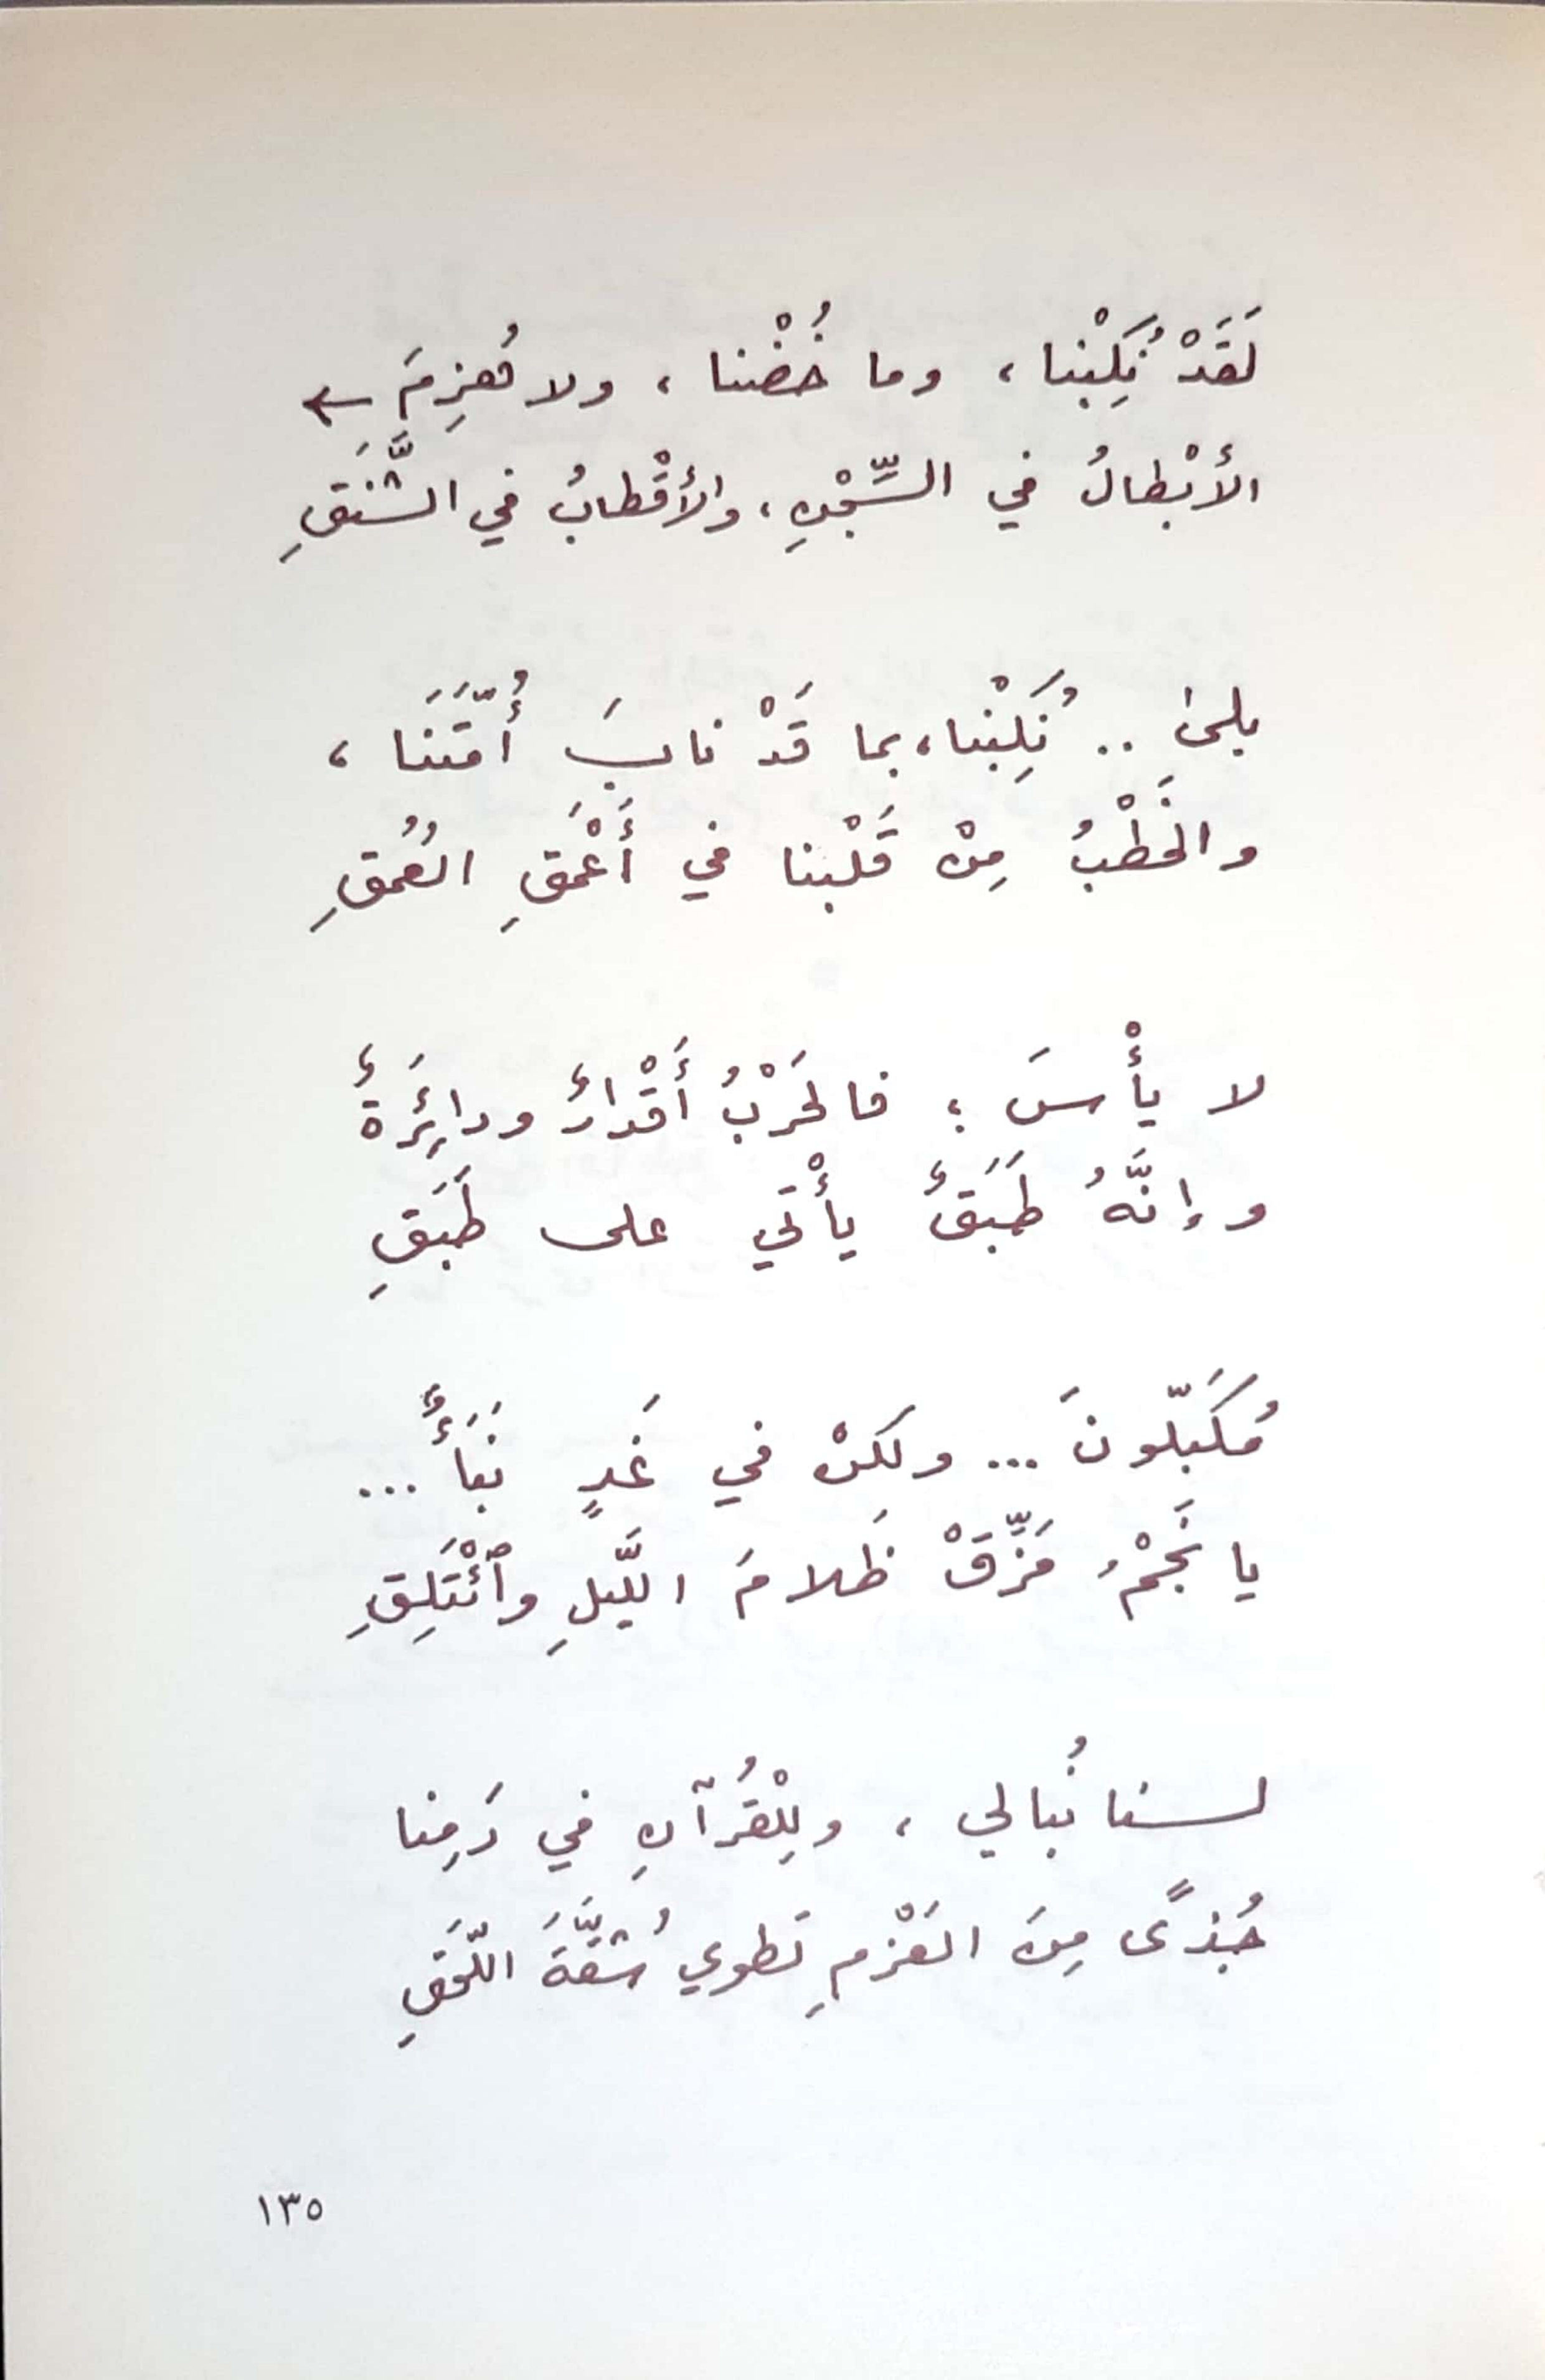 لَقَدْ نُكِبْنا ، وما خُضْنا ، ولا هُزِمَ ←
الأبْطالُ في السِّجْنِ ، والأقْطابُ في الشَّنَقِ
بلىٰ .. نُكِبْنا ، بما قَدْ نابَ أُمّتَنَا ،
والخَطْبُ مِنْ قَلْبنا في أَعْمَقِ العُمُقِ
لا يأْسَ ؛ فالحَرْبُ أَقْدارٌ ودائِرَةٌ
وإنَّهُ طَبَقٌ يأْتي على طَبَقِ
مُكَبّلونَ ... ولكنْ في غَدٍ نَبَأٌ ...
يا نَجْمُ مَزِّقْ ظَلامَ اللَّيلِ وٱئْتَلِقِ
لسنا نُبالي ، ولِلْقُرآنِ في دَمِنا
جُذًى مِنَ العَزْمِ تَطوي شُقَّةَ اللّحَقِ
١٣٥